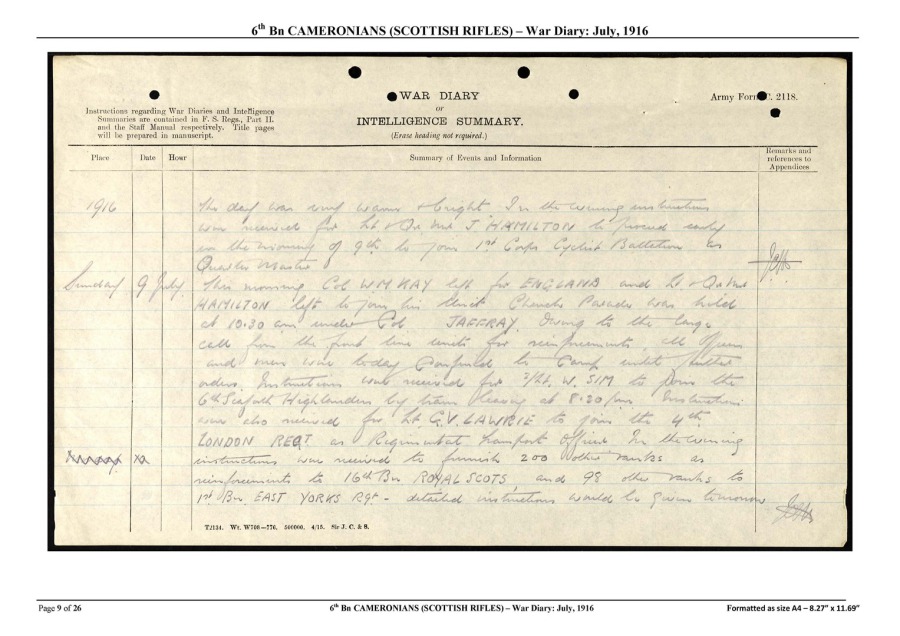 6th Bn CAMERONIANS (SCOTTISH RIFLES) – War Diary: July, 1916
WAR DIARY
or
INTELLIGENCE SUMMARY.
(Erase heading not required.)
Army Form C. 2118.
Instructions regarding War Diaries and Intelligence
Summaries are contained in F. S. Regs., Part II.
and the Staff Manual respectively. Title pages
will be prepared in manuscript.
Place Date Hour Summary of Events and Information Remarks and references to Appendices
1916 The day was very warm & bright. In the evening instructions
was received for Lt & Qr Mr J HAMILTON to proceed early
in the morning of 9th to join 1st Corps Cyclist Battalion as
Quarter Master
Sunday 9 July This morning Col WM KAY left for ENGLAND and Lt & Qr Mr
HAMILTON left to join his Unit. Church Parade was held
at 10.30 am under Col JAFFRAY. Owing to the large
call from the front line units for reinforcements, all Officers
and men were today confined to Camp until further
orders. Instructions was received for 2/Lt. W. SIM to join the
6th Seaforth Highlanders by train leaving at 8.30 pm. Instructions
were also received for Lt G.V. LAWRIE to join the 4th
LONDON REGT as Regimental Transport Officer. In the evening
instructions was received to furnish 200 other ranks as
reinforcements to 16th Bn ROYAL SCOTS, and 98 other ranks to
1st Bn EAST YORKS Rgt - detailed instructions would be given tomorrow
T2134. Wt. W708—776. 500000. 4/15. Sir J. C. & S.
Page 9 of 26 6th Bn CAMERONIANS (SCOTTISH RIFLES) – War Diary: July, 1916 Formatted as size A4 – 8.27" x 11.69"